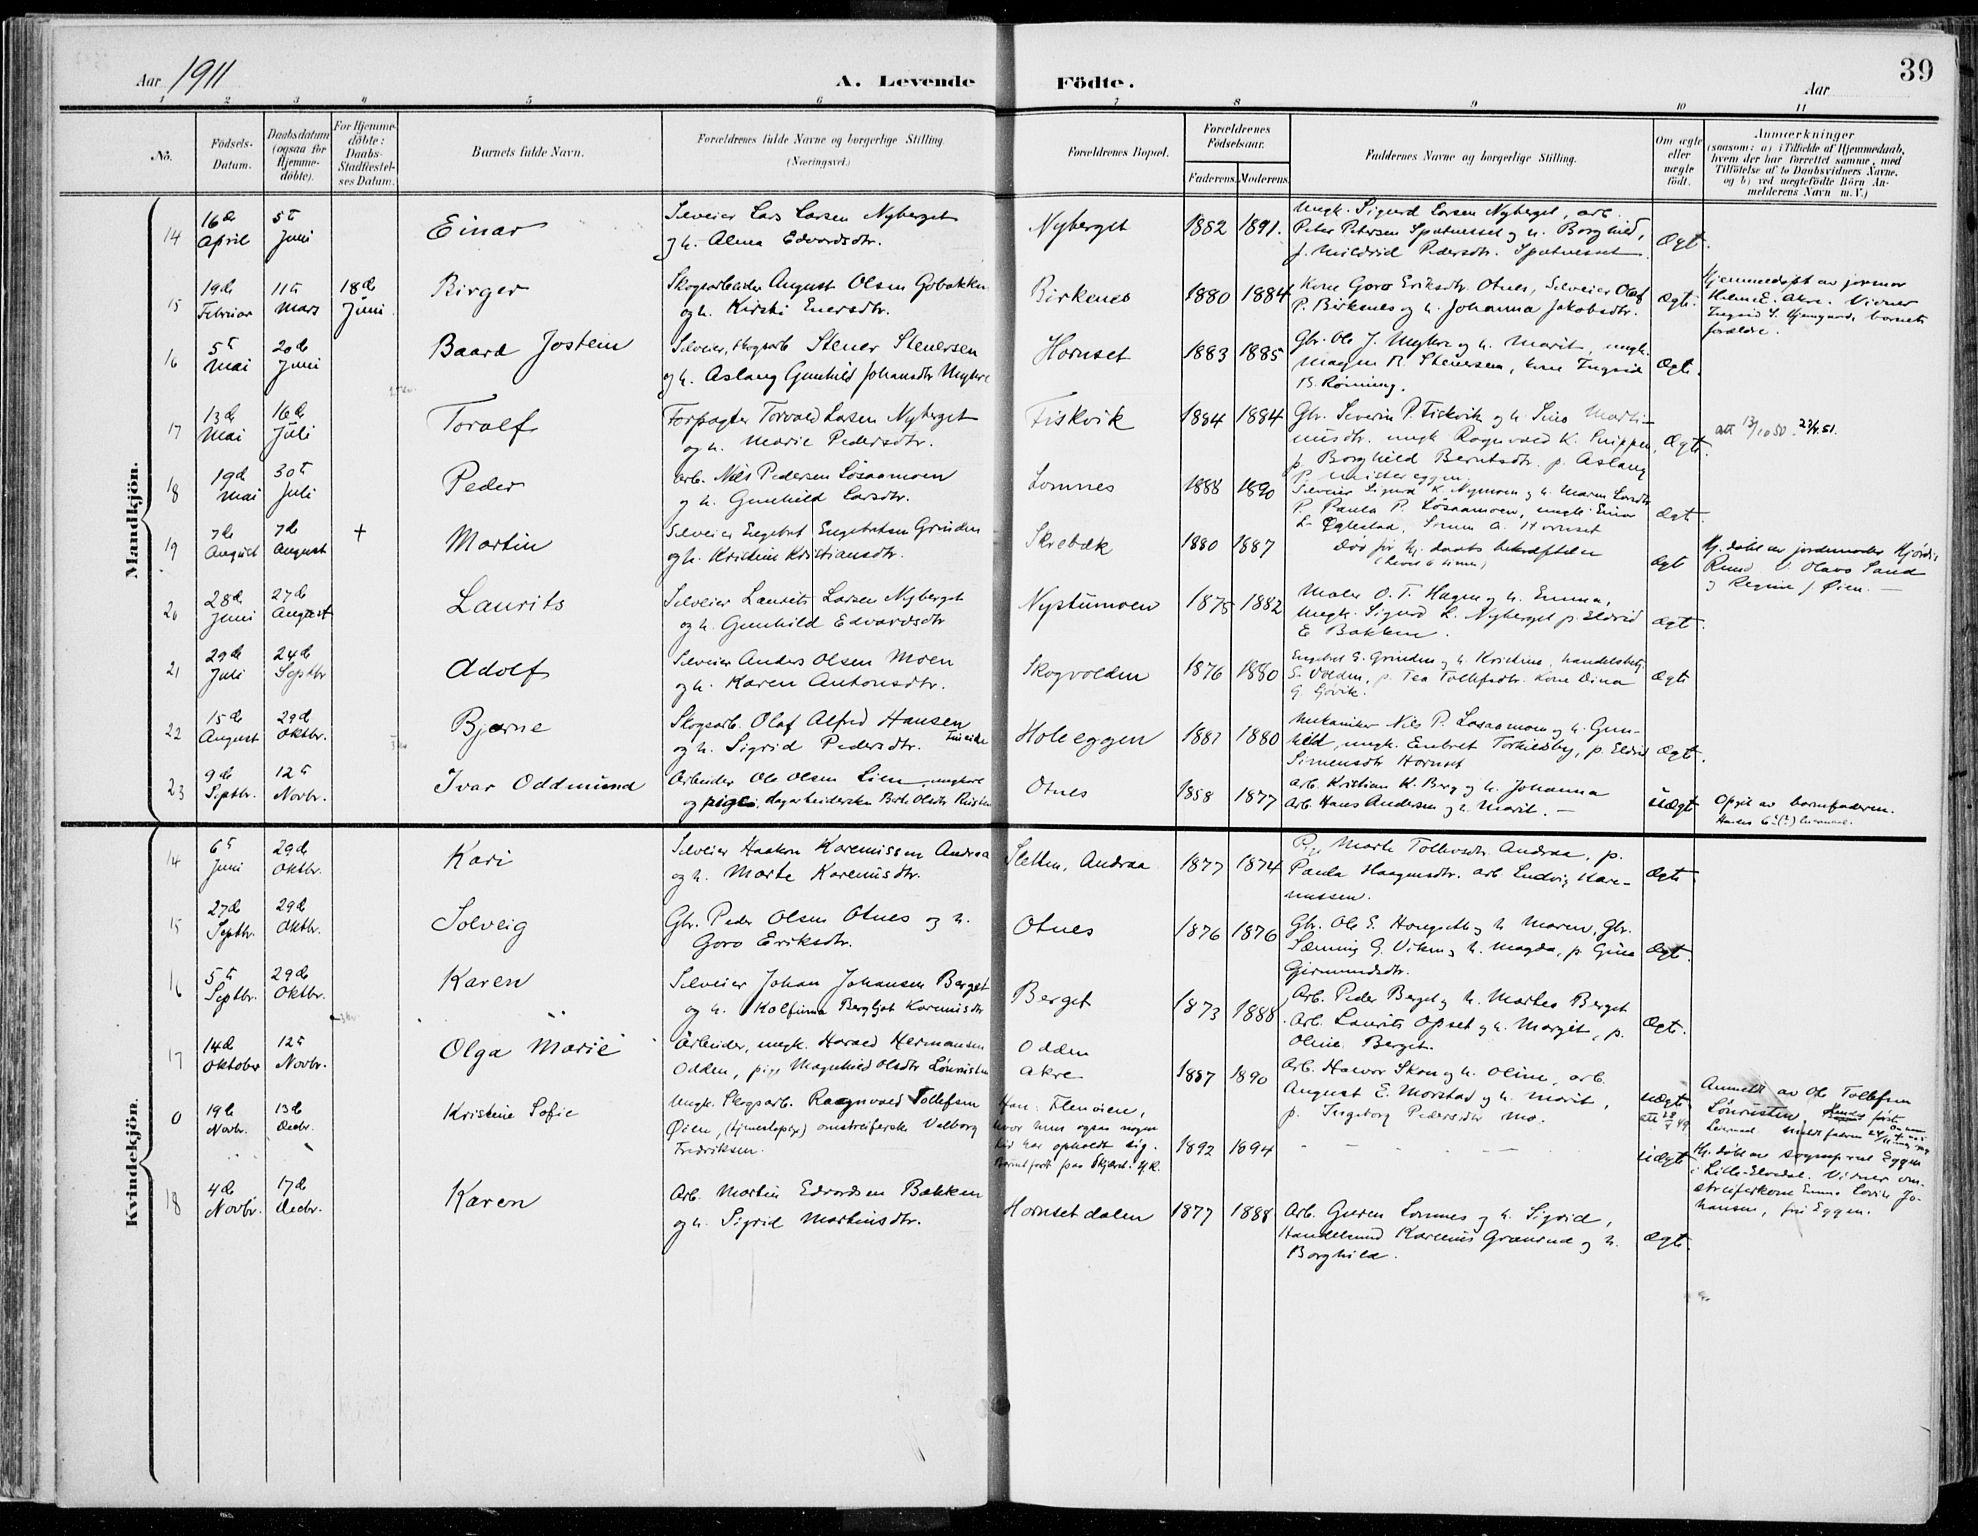 Aar 1911
A. Levende Födte.
Aar
39
1 2 3 4 5 6 7 8 9 10 11
No.
Födsels-Datum.
Daabsdatum (ogsaa for Hjemme-döbte).
For Hjemme-döbte: Daabs-Stadfæstel-ses Datum.
Barnets fulde Navn.
Forældrenes fulde Navne og borgerlige Stilling. (Næringsvei.)
Forældrenes Bopæl.
Forældrenes Födselsaar.
Faderens. Moderens.
Faddernes Navne og borgerlige Stilling.
Om ægte eller uægte födt.
Anmærkninger
(saasom: a) i Tilfælde af Hjemmedaab,
hvem der har forrettet samme, med
Tilföielse af to Daabsvidners Navne.
og b) ved uegtefödte Börn An-
melderens Navn m. V.)
Mandkjön.
14 16de April 5te Juni Einar
Selveier Lars Larsen Nyberget
og h. Alma Edvardsdtr.
Nyberget 1882 1891.
Ungk. Sigurd Larsen Nyberget, arb.
Peter Petersen Spatnesset og h. Borghild,
p. Mildrid Pedersdtr. Spatnesset
Ægt.
15 19de Februar 11te Mars 18de Juni Birger
Skogsarbeider August Olsen Gobakken
og h. Kirsti Enersdtr.
Birkenes 1880 1884
Kone Goro Eriksdtr. Otnes, Selveier Olaf
P. Birkenes og h. Johanna Jakobsdtr.
Ægte.
Hjemmedøpt av jormor
Helene E. Akre. Vidner
Ingrid S. barnets
forældre.
16 5te Mai 20de Juni Baard Jostein
Selveier, skogsarb Stener Stenersen
og h. Aslaug Gunhild Johansdtr Mykre
Hornset 1883 1885
Gbr. Ole J. Mykre og h. Marit, ungk.
Magnn R. Stenersen, kone Ingrid
B. Rønning.
Ægte.
17 13de Mai 16de Juli Toralf
Forpagter Torvald Larsen Nyberget
og h. Marie Pedersdtr.
Fiskvik 1884 1884
Gbr. Severin P. Fiskvik og h. Sina Marti-
nusdtr. ungk Ragnvald K. Snippen,
p. Borghild Berntsdtr. p. Aslaug
P. Misteregggen.
Ægte.
att 13/10 50. 23/4.51.
18 19de Mai 30te Juli Peder
Arb. Nils Pedersen Løsaamoen
og h. Gunhild Larsdtr.
Lomnes 1888 1890
Selveier Sigurd K. Nymoen og h. Maren Larsdtr
P. Paula P. Løsaamoen, ungk Einar
L. Øglestad, Hornset
Ægt.
19 7de August 7de August + Martin
Selveier Engebret Engebretsen Grinden
og h. Kristine Kristiansdtr.
Skrebæk 1880 1887
Død før hj. daabs bekræftelse
(Levet 6 timer)
Ægt
Hj. døbt av jordemoder Hjørdis
Rund V. Olavs Sand
og Regine J. Øien.
20 28de Juni 27de August Laurits
Selveier Laurits Larsen Nyberget
og h. Gunhild Edvardsdtr
Nystumoen 1875 1882
Maler O. T. Hagen og h. Emma,
Ungk. Sigurd L. Nyberget p. Eldrid
E. Bakken.
Ægt.
21 29de Juli 24de Septbr Adolf
Selveier Anders Olsen Moen
og h. Karen Antonsdtr.
Skogvolden 1876 1880
Engebret E. Grinden og h. Kristine, handelsbetj.
S. Volden, p. Tea Tollefsdtr. Kone Dina
G. Gjøvik.
Ægte
22 15de August 29de Oktbr. Bjarne
Skogsarb. Olaf Alfred Hansen
og h. Sigrid Pedersdtr.
Holeeggen 1881 1880
Mekaniker Nils P. Løsaamoen og h. Gun-
hild, ungk. Embret Torkildsby, p. Eldrid
Simensdtr Hornset
Ægt.
23 9de Septbr. 12te Novbr. Ivar Oddmund
Arbeider Ole Olsen Lien, ungkarl
og pige, dagarbeiderske Berte Olsdtr Rusten
Otnes 1858 1877
Arb. Kristian K. Berg og h. Johanna
Arb. Hans Andersen og h. Marit. —
Uægt
Opgit av barnefaderen.
Hendes 6te(?) leiermaal.
Kvindekjön.
14 6te Juni 29de Oktbr. Kari
Selveier Haakon Karenissen Andraa
og h. Marte Karenusdtr.
Sletten, Andraa 1877 1874
Pige Marte Tollevsdtr. Andraa, p.
Paula Haagensdtr. arb Ludvig Kare-
nussen.
Ægte
15 27de Septbr. 29de Oktbr. Solveig
Gbr. Peder Olsen Otnes og h.
Goro Eriksdtr.
Otnes 1876 1876
Gbr. Ole E. Hangseth og h Maren, Gbr.
Sæming G. Viken og h. Magda, p. Gina
Geirmundsdtr.
Ægt.
16 5te Septbr. 29de Oktbr. Karen
Selveier Johan Johansen Berget
og h. Kolfinna Bergljot Karenusdtr
Berget 1873 1888
Arb. Peder Berget og h. Martea Berget
Arb. Laurits Opset og h. Margit, p.
Oline Berget.
Ægt.
17 14de Oktober 12te Novbr. Olga Marie
Arbeider, ungk. Harald Hermansen
Odden, pige Magnhild Olsdtr Lønrusten
Odden
Akre 1887 1890
Arb. Halvor Skou og h. Oline, arb.
August E. Morstad og h. Marit,
p. Ingeborg Pedersdtr Mo.
Uægt
Anmeldt av Ole Tollefsen
Lønrusten, Hendes første
Leiermaal
0 19de Novbr. 13de Decbr. Kristine Sofie
Ungk. Skogsarb. Ragnvald Tollefsen
Øien, omstreiferske Valborg
Fredriksen.
Han: Flenøien,
hvor hun ogsaa nogen
tid har opholdt sig.
1892 1894
— — — —
Uægt
Hj. døbt av sogneprest Eggen
i Lille-Elvedal. Vidner om-
streiferkone Emma Lovise Jo-
hansen, fru Eggen.
18 4de Novbr. 17de Decbr. Karen
Arb. Martin Edvardsen Bakken
og h. Sigrid Martinsdtr.
Hornsetdalen 1877 1888
Arb. Gulen Lomnes og h. Sigrid,
Handelsmd Karenus Granrud og h.
Borghild.
Ægte.